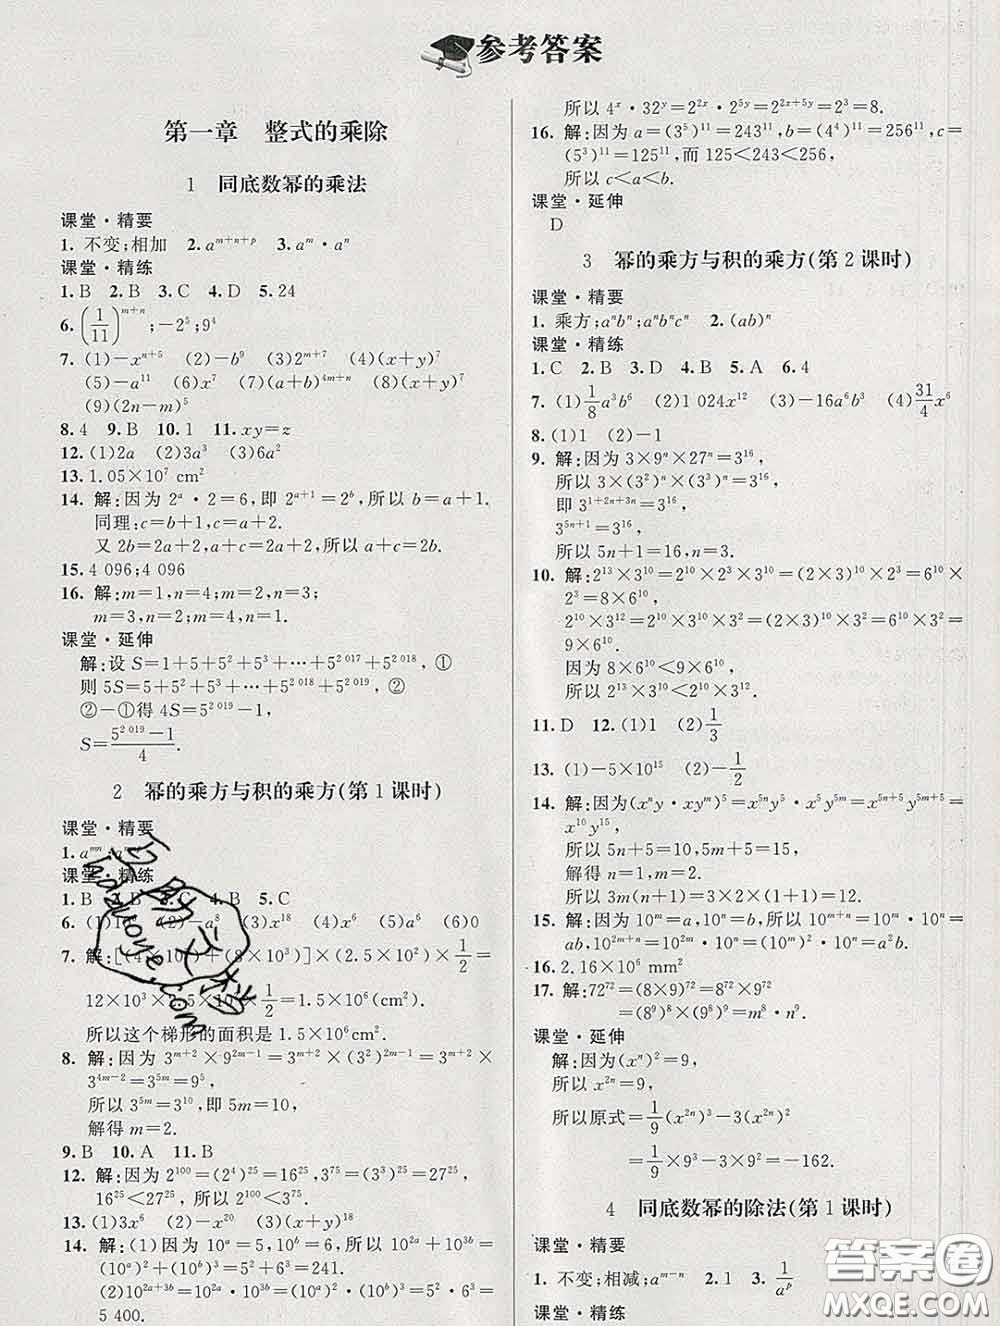 参考答案
第一章 整式的乘除
1 同底数幂的乘法
课堂·精要
1. 不变;相加 2. a^{m+n+p} 3. a^m·a^n
课堂·精练
1. B 2. B 3. C 4. D 5. 24
6. (1/11)^{m+n};-2^5;9^4
7. (1)-x^{n+5} (2)-b^9 (3)2^{m+7} (4)(x+y)^7
(5)-a^{11} (6)x^7 (7)(a+b)^{4m+n} (8)(x+y)^7
(9)(2n-m)^5
8. 4 9. B 10. 1 11. xy=z
12. (1)2a (2)3a^3 (3)6a^2
13. 1.05×10^7 cm^2
14. 解:因为 2^a·2=6,即 2^{a+1}=2^b,所以 b=a+1.
同理:c=b+1,c=a+2.
又 2b=2a+2,a+c=2a+2,所以 a+c=2b.
15. 4 096;4 096
16. 解:m=1,n=4;m=2,n=3;
m=3,n=2;m=4,n=1.
课堂·延伸
解:设 S=1+5+5^2+5^3+…+5^{2 017}+5^{2 018},①
则 5S=5+5^2+5^3+…+5^{2 018}+5^{2 019},②
②-①得 4S=5^{2 019}-1,
S=(5^{2 019}-1)/4.
2 幂的乘方与积的乘方(第 1 课时)
课堂·精要
1. a^{mn}
课堂·精练
1. B 3. C 4. B 5. C
6. (2)-a^8 (3)x^{18} (4)x^6 (5)a^6 (6)0
7. 解:+(8×10^3)]×(2.5×10^2)×1/2=
12×10^3××1/2=1.5×10^6(cm^2).
所以这个梯形的面积是 1.5×10^6 cm^2.
8. 解:因为 3^{m+2}×9^{2m-1}=3^{m+2}×(3^2)^{2m-1}=3^{m+2}×
3^{4m-2}=3^{5m}=9^5,
所以 3^{5m}=3^{10},即 5m=10,
解得 m=2.
9. B 10. A 11. B
12. 解:因为 2^{100}=(2^4)^{25}=16^{25},3^{75}=(3^3)^{25}=27^{25},
16^{25}<27^{25},所以 2^{100}<3^{75}.
13. (1)3x^6 (2)-x^{20} (3)(x+y)^{18}
14. 解:(1)因为 10^a=5,10^b=6,所以 10^{2a}+10^{3b}=
(10^a)^2+(10^b)^3=5^2+6^3=241.
(2)10^{2a+3b}=10^{2a}×10^{3b}=(10^a)^2×(10^b)^3=5^2×6^3=
5 400.
所以 4^x·32^y=2^{2x}·2^{5y}=2^{2x+5y}=2^3=8.
16. 解:因为 a=(3^5)^{11}=243^{11},b=(4^4)^{11}=256^{11},c=
(5^3)^{11}=125^{11},而 125<243<256,
所以 c<a<b.
课堂·延伸
D
3 幂的乘方与积的乘方(第 2 课时)
课堂·精要
1. 乘方;a^nb^n;a^nb^nc^n 2. (ab)^n
课堂·精练
1. C 2. B 3. D 4. B 5. A 6. 4
7. (1)1/8a^3b^6 (2)1 024x^{12} (3)-16a^6b^3 (4)31/4x^6
8. (1)1 (2)-1
9. 解:因为 3×9^n×27^n=3^{16},
所以 3×(3^2)^n×(3^3)^n=3^{16},
即 3^{1+2n+3n}=3^{16},
3^{5n+1}=3^{16},
所以 5n+1=16,解得 n=3.
10. 解:2^{13}×3^{10}=2^{10}×2^3×3^{10}=(2×3)^{10}×2^3=6^{10}×
2^3=8×6^{10},
2^{10}×3^{12}=2^{10}×3^{10}×3^2=(2×3)^{10}×3^2=6^{10}×3^2=
9×6^{10}.
因为 8×6^{10}<9×6^{10},
所以 2^{13}×3^{10}<2^{10}×3^{12}.
11. D 12. (1)1 (2)1/3
13. (1)-5×10^{15} (2)-1/2
14. 解:因为(x^ny·xy^m)^5=x^{5n}y^5·x^5y^{5m}=x^{5n+5}y^{5m+5}=
x^{10}y^{15},
所以 5n+5=10,5m+5=15,
解得 n=1,m=2.
所以 3m(n+1)=3×2×(1+1)=12.
15. 解:因为 10^m=a,10^n=b,所以 10^{m+n}=10^m·10^n=
ab,10^{2m+n}=10^{2m}·10^n=(10^m)^2·10^n=a^2b.
16. 2.16×10^6 mm^2
17. 解:72^{72}=(8×9)^{72}=8^{72}×9^{72}
=(8^9)^8×(9^8)^9=m^8·n^9.
课堂·延伸
解:因为(x^n)^2=9,
所以 x^{2n}=9,
所以原式=1/9(x^{2n})^3-3(x^{2n})^2
=1/9×9^3-3×9^2=-162.
4 同底数幂的除法(第 1 课时)
课堂·精要
1. 不变;相减;a^{m-n} 2. 1 3. 1/a^p
课堂·精练
答案圈
MXQE.COM